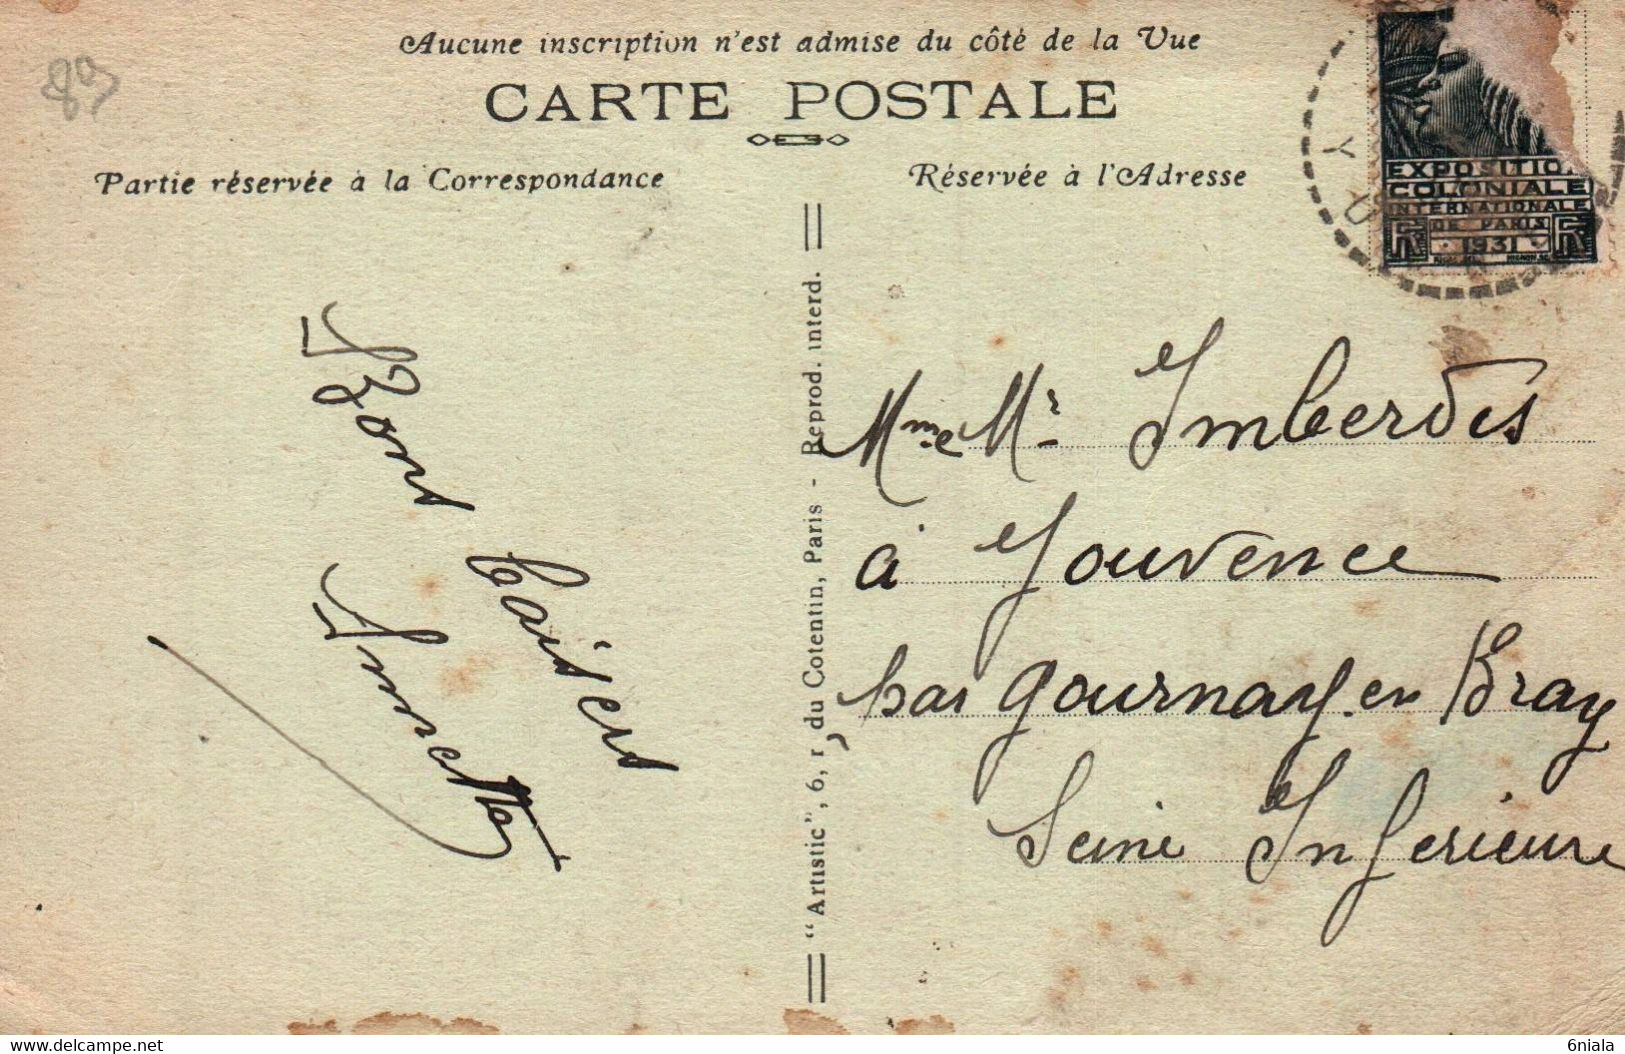 Aucune inscription n'est admise du côté de la Vue
CARTE POSTALE
Partie réservée à la Correspondance
Réservée à l'Adresse
89
EXPOSITION
COLONIALE
INTERNATIONALE
DE PARIS
1931
RF RF
Bons baisers
Annetta
"Artistic", 6, r. du Cotentin, Paris - Reprod. interd.
Mme Mr Imberdis
à Jouvence
par Gournay en Bray
Seine Inferieure
delcampe.net
6niala